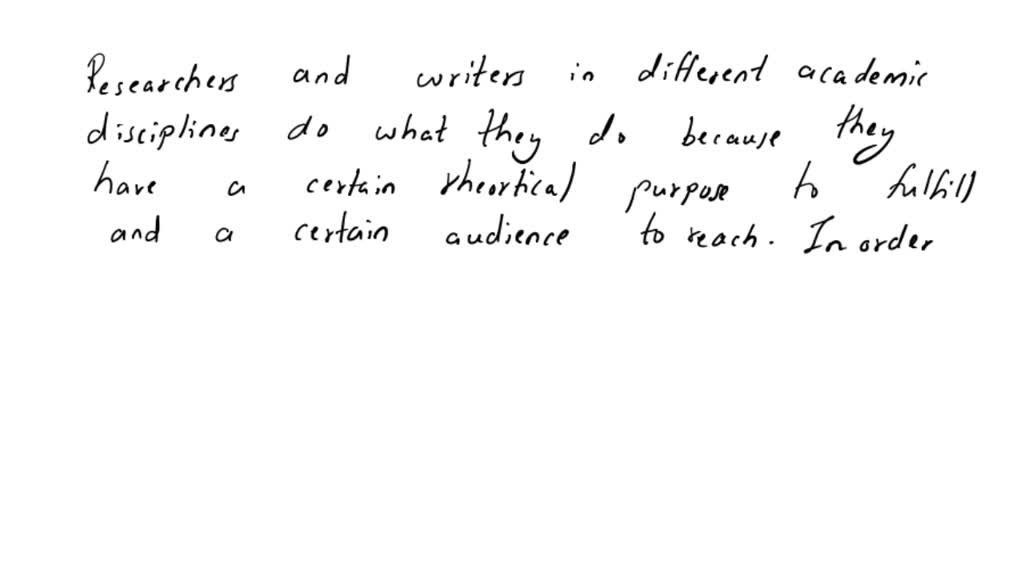 Researchers and writers in different academic
disciplines do what they do because they
have a certain rheortical purpose to fulfill
and a certain audience to reach. In order